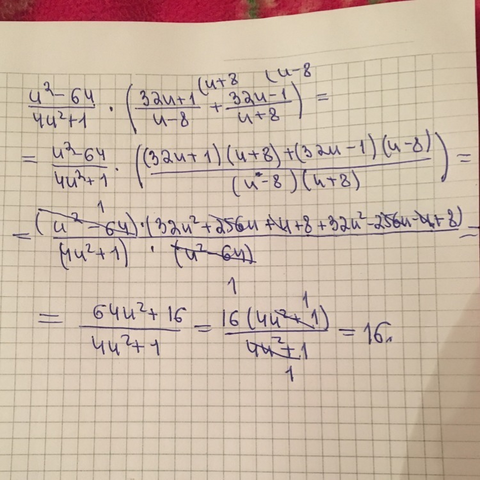 (u²-64)/(4u²+1) · ((32u+1)/(u-8) (u+8 + (32u-1)/(u+8) (u-8) =
= (u²-64)/(4u²+1) · (((32u+1)(u+8)+(32u-1)(u-8))/((u-8)(u+8))) =
= ((u²-64) 1 · (32u²+256u+u+8+32u²-256u-u+8))/((4u²+1) · (u²-64) 1) =
= (64u²+16)/(4u²+1) = (16(4u²+1) 1)/(4u²+1 1) = 16.